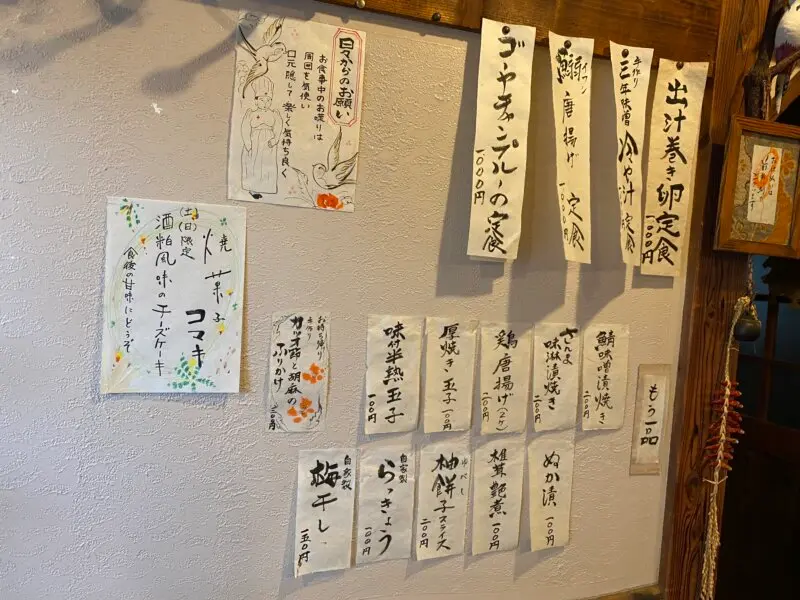 出汁巻き卵定食
一〇〇〇円
手作り
三年味噌 冷や汁定食
唐揚げ 定食
一〇〇〇円
ゴーヤチャンプルーの定食
一〇〇〇円
日々からのお願い
お食事中のお喋りは
周囲を気使い
口元隠して楽しく気持ち良く
もう一品
鯖味噌漬焼き
二〇〇円
さんま
味淋漬焼き
二〇〇円
鶏唐揚げ(2ヶ)
二〇〇円
厚焼き玉子
一〇〇円
味付半熟玉子
一〇〇円
お持ち帰り
手作り
カツオ節と胡麻の
ふりかけ
焼菓子 コマキ
(土)(日)限定
酒粕風味のチーズケーキ
食後の甘味にどうぞ
ぬか漬
一〇〇円
椎茸艶煮
一〇〇円
ゆべし
柚餅子スライス
二〇〇円
自家製
らっきょう
一〇〇円
自家製
梅干し
一五〇円